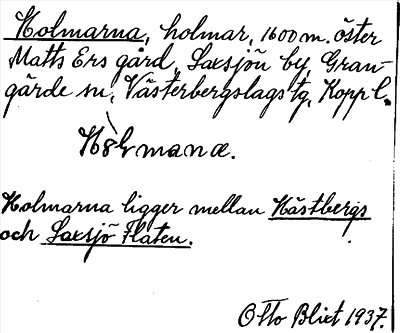 Holmarna, holmar, 1600 m. öster
Matts Ers gård, Saxsjön by, Gran-
gärde sn, Västerbergslags tg, Kopp l.
Holmarna ligger mellan Hästbergs
och Saxsjö Flaten.
Otto Blixt 1937.